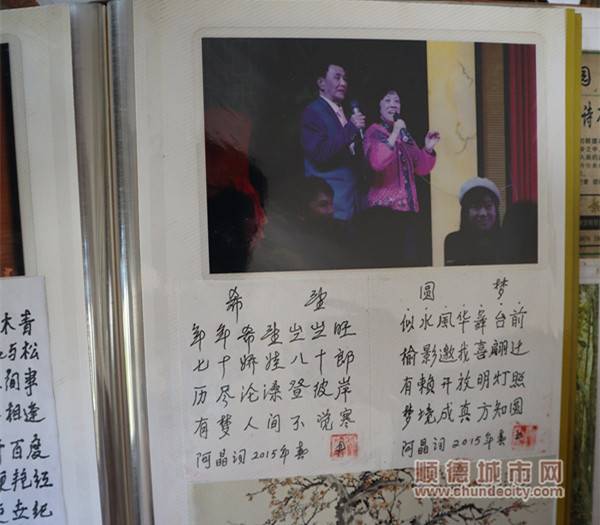 希望
年年希望岁岁旺
七十娇娃八十郎
历尽沦漆登彼岸
有梦人间不觉寒
阿晶词2015年春
圆梦
似水風华舞台前
榆影邀我喜翩迁
有賴开放明灯照
梦境成真方知圆
阿晶词2015年春
木青
与松
间事
相逢
百度
圆
诗
顺德城市网
www.chundecity.com